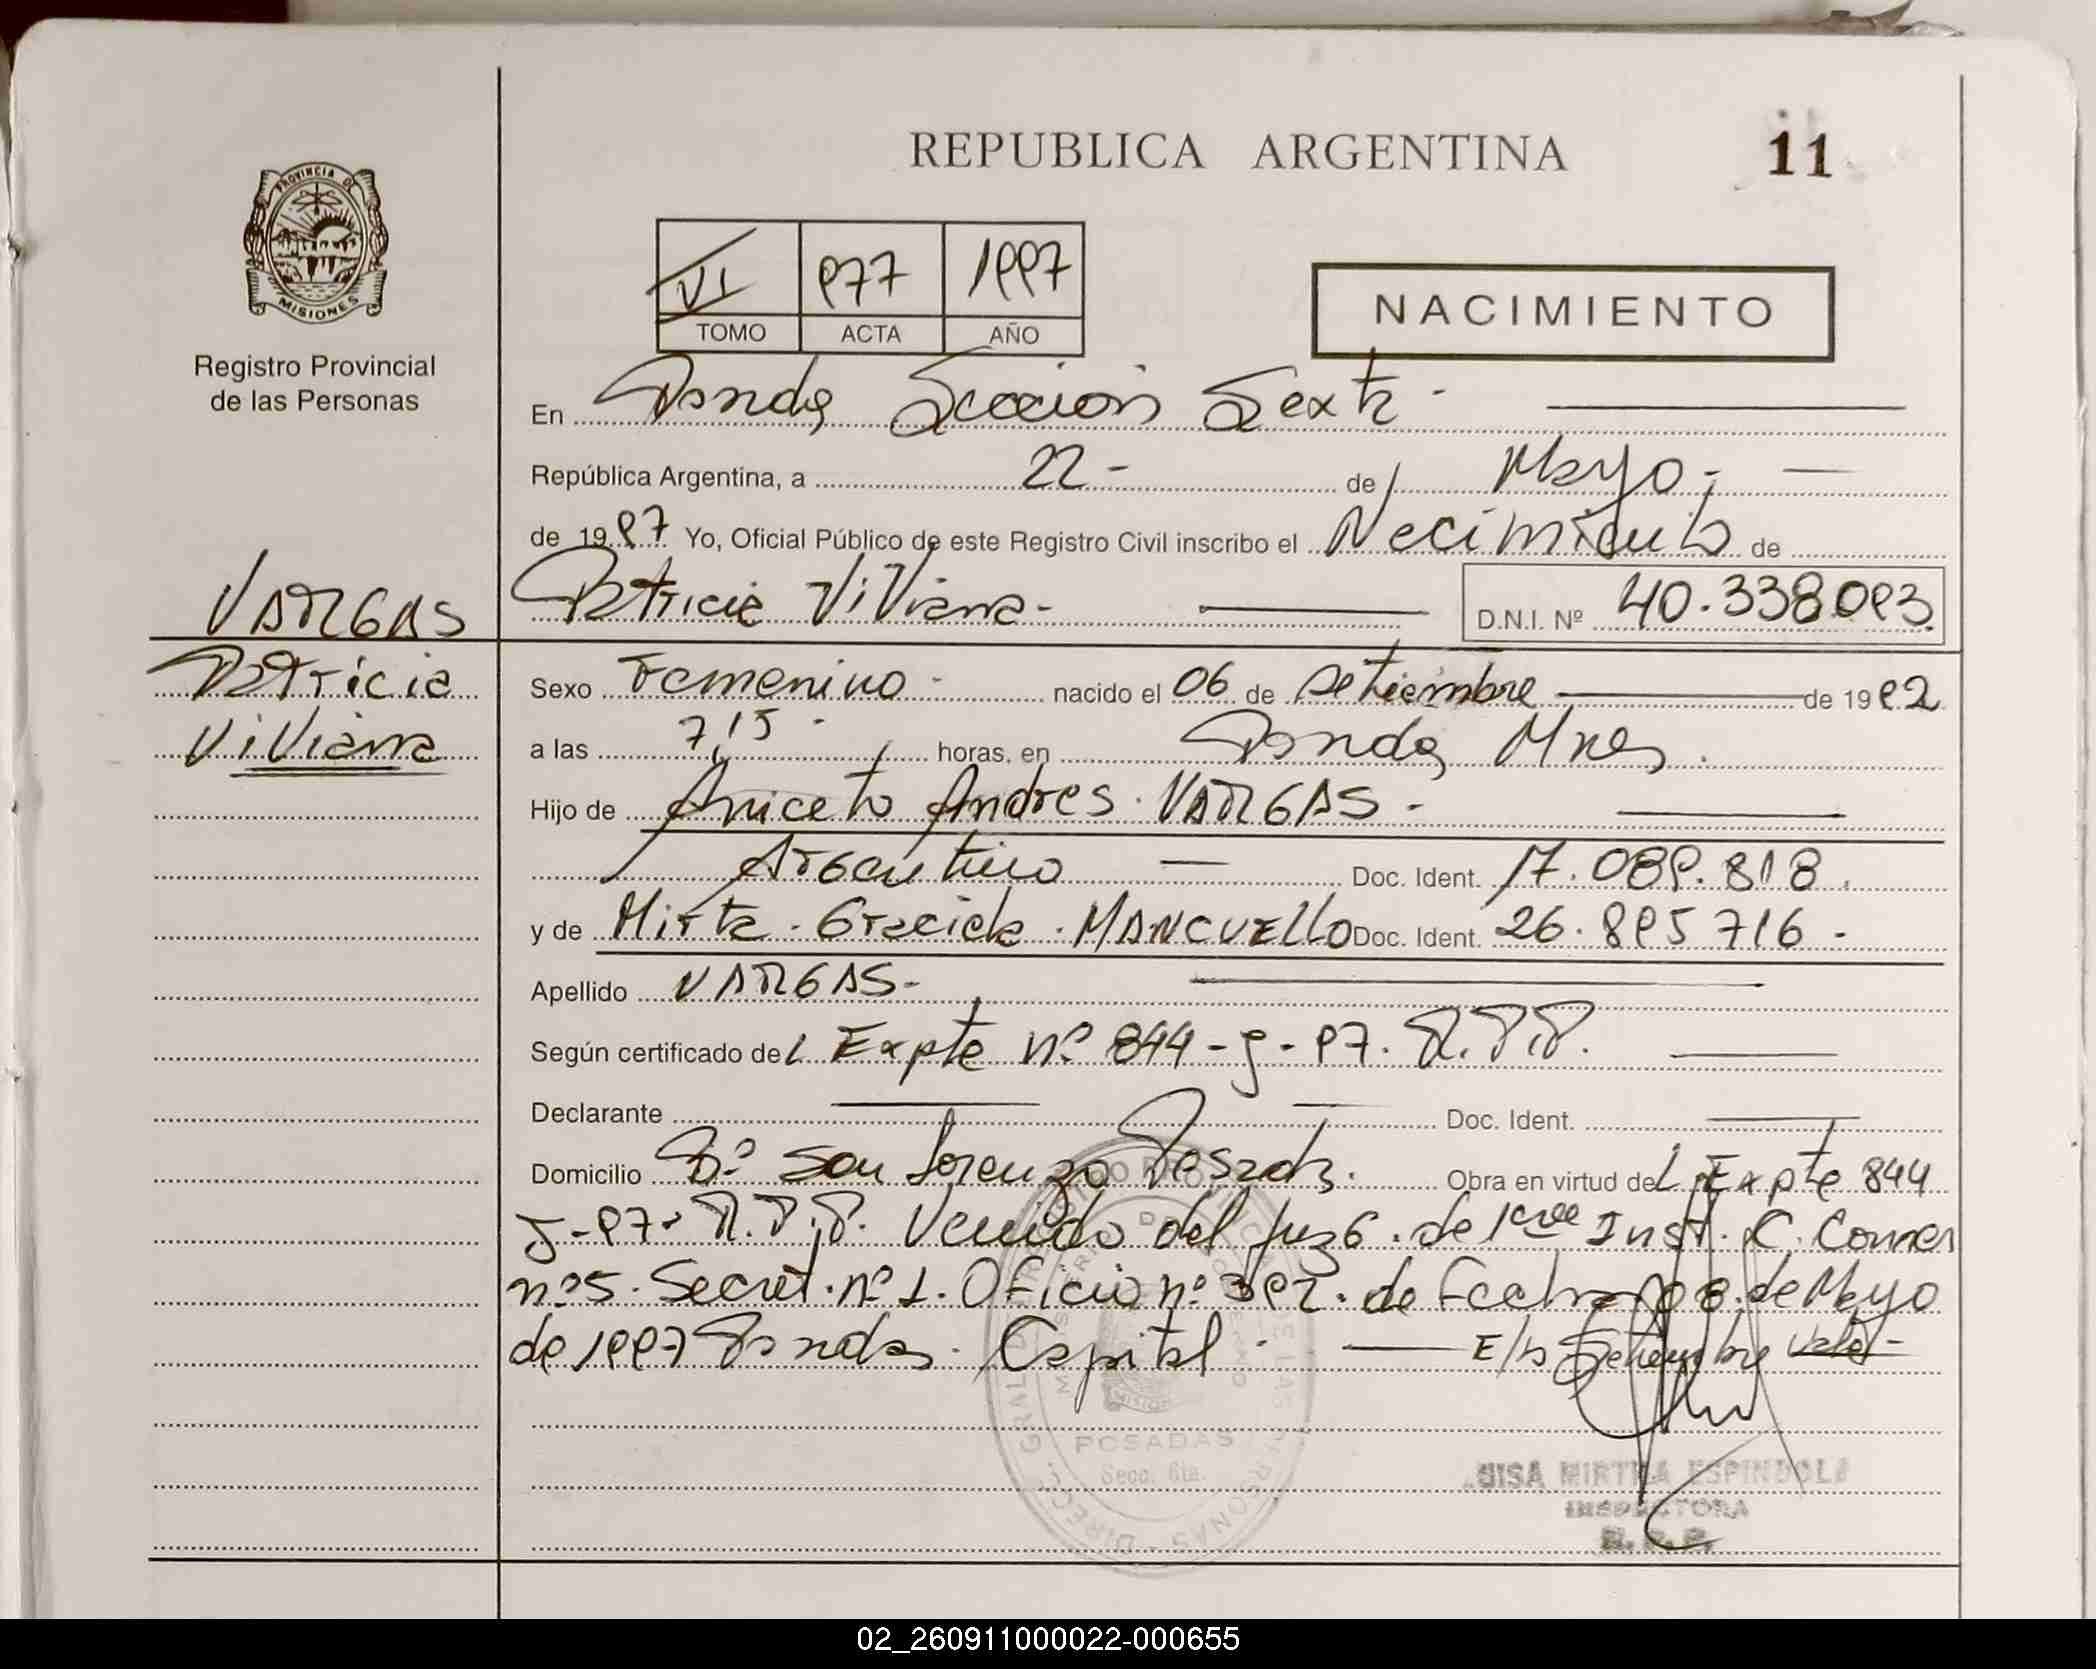 REPUBLICA ARGENTINA 11
PROVINCIA DE
MISIONES
Registro Provincial
de las Personas
VI 977 1997
TOMO ACTA AÑO
NACIMIENTO
En Posadas Sección Sexta -
República Argentina, a 22 - de Mayo -
de 1997 Yo, Oficial Público de este Registro Civil inscribo el Nacimiento de
VARGAS
Patricia Viviana - D.N.I. Nº 40.338.093
Patricia
Viviana
Sexo Femenino - nacido el 06 de Setiembre de 1992
a las 7,15 - horas, en Posadas Mnes.
Hijo de Aniceto Andres VARGAS -
Argentino Doc. Ident. 17.089.818.
y de Mirta Graciela MANCUELLO Doc. Ident. 26.895716 -
Apellido VARGAS -
Según certificado del Expte Nº 844 - J - 97. R.P.P.
Declarante Doc. Ident.
Domicilio Bº San Lorenzo Posadas. Obra en virtud del Expte 844
J-97- R.P.P. Venido del Juzg. de 1era Inst. C. Comer
nº5. Secret. nº 1. Oficio nº 392. de Fecha 08 de Mayo
de 1997 Posadas. Capital - E/L Setiembre Vale -
POSADAS
Secc. 6ta.
LUISA MIRTHA ESPINDOLA
INSPECTORA
R. P. P.
02_260911000022-000655